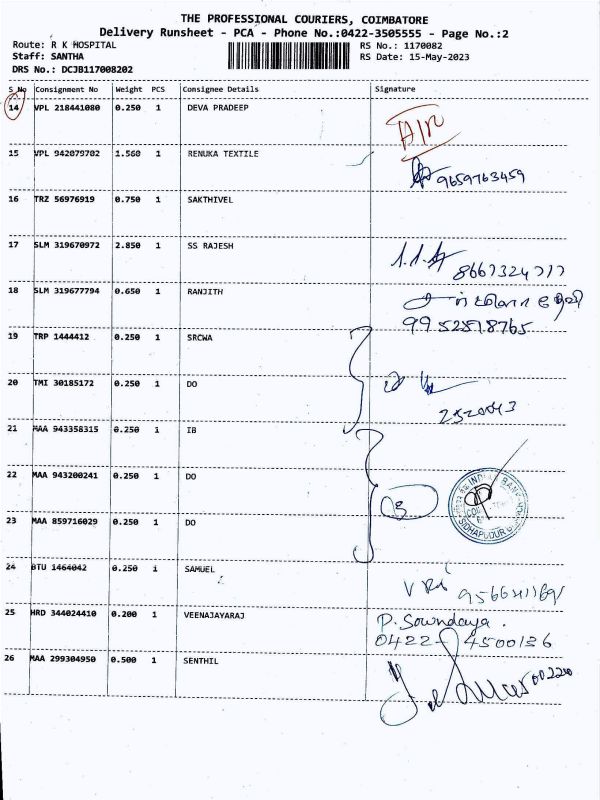 THE PROFESSIONAL COURIERS, COIMBATORE
Delivery Runsheet - PCA - Phone No.:0422-3505555 - Page No.:2
Route: R K HOSPITAL
Staff: SANTHA
DRS No.: DCJB117008202
RS No.: 1170082
RS Date: 15-May-2023
S No Consignment No Weight PCS Consignee Details Signature
14 VPL 218441080 0.250 1 DEVA PRADEEP AIR
15 VPL 942079702 1.560 1 RENUKA TEXTILE 9659763459
16 TRZ 56976919 0.750 1 SAKTHIVEL
17 SLM 319670972 2.850 1 SS RAJESH
18 SLM 319677794 0.650 1 RANJITH
19 TRP 1444412 0.250 1 SRCWA
20 TMI 30185172 0.250 1 DO
21 MAA 943358315 0.250 1 IB
22 MAA 943200241 0.250 1 DO
23 MAA 859716029 0.250 1 DO
INDIAN BANK
SIDHAPUDUR
24 BTU 1464042 0.250 1 SAMUEL
25 HRD 344024410 0.200 1 VEENAJAYARAJ P. Sowndaya.
0422-4500136
26 MAA 299304950 0.500 1 SENTHIL